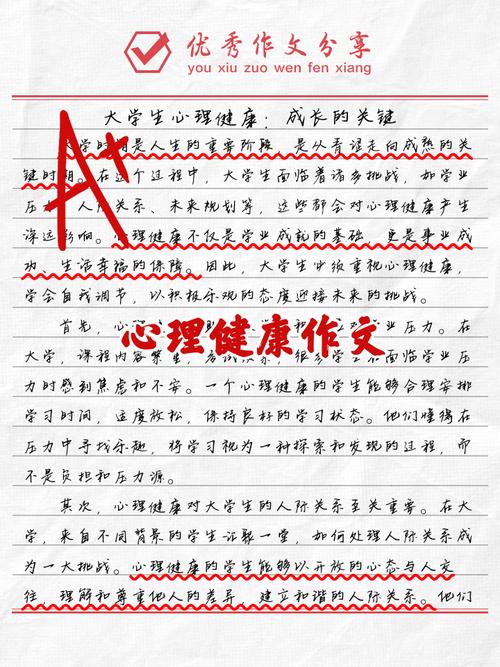 优秀作文分享
you xiu zuo wen fen xiang
大学生心理健康：成长的关键
大学时期是人生的重要阶段，是从青涩走向成熟的关
键时期。在这个过程中，大学生面临着诸多挑战，如学业
压力、人际关系、未来规划等，这些都会对心理健康产生
深远影响。心理健康不仅是学业成就的基础，更是事业成
功、生活幸福的保障。因此，大学生必须重视心理健康，
学会自我调节，以积极乐观的态度迎接未来的挑战。
首先，心理 业压力。在
心理健康作文
大学，课程内容繁重，考试 很多学生 面临学业压
力时感到焦虑和不安。一个心理健康的学生能够合理安排
学习时间，适度放松，保持良好的学习状态。他们懂得在
压力中寻找乐趣，将学习视为一种探索和发现的过程，而
不是负担和压力源。
其次，心理健康对大学生的人际关系至关重要。在大
学，来自不同背景的学生汇聚一堂，如何处理人际关系成
为一大挑战。心理健康的学生能够以开放的心态与人交
往，理解和尊重他人的差异，建立和谐的人际关系。他们
A+